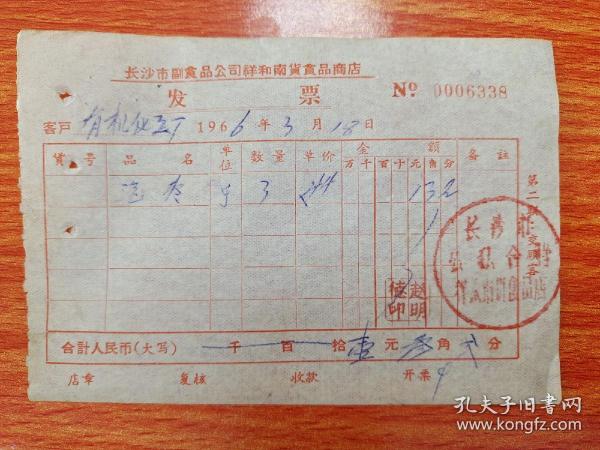 长沙市副食品公司祥和南货食品商店
发 票 Nº 0006338
客戶 有机化工厂 1966年3月18日
貨号 品名 单位 数量 单价 金额 备註
万千百十元角分
3 132
赵明德印
第二联：交顾客
长沙市
公私合营
合計人民币(大写) 千 百 拾壹元叁角贰分
店章 复核 收款 开票
孔夫子旧书网
www.kongfz.com